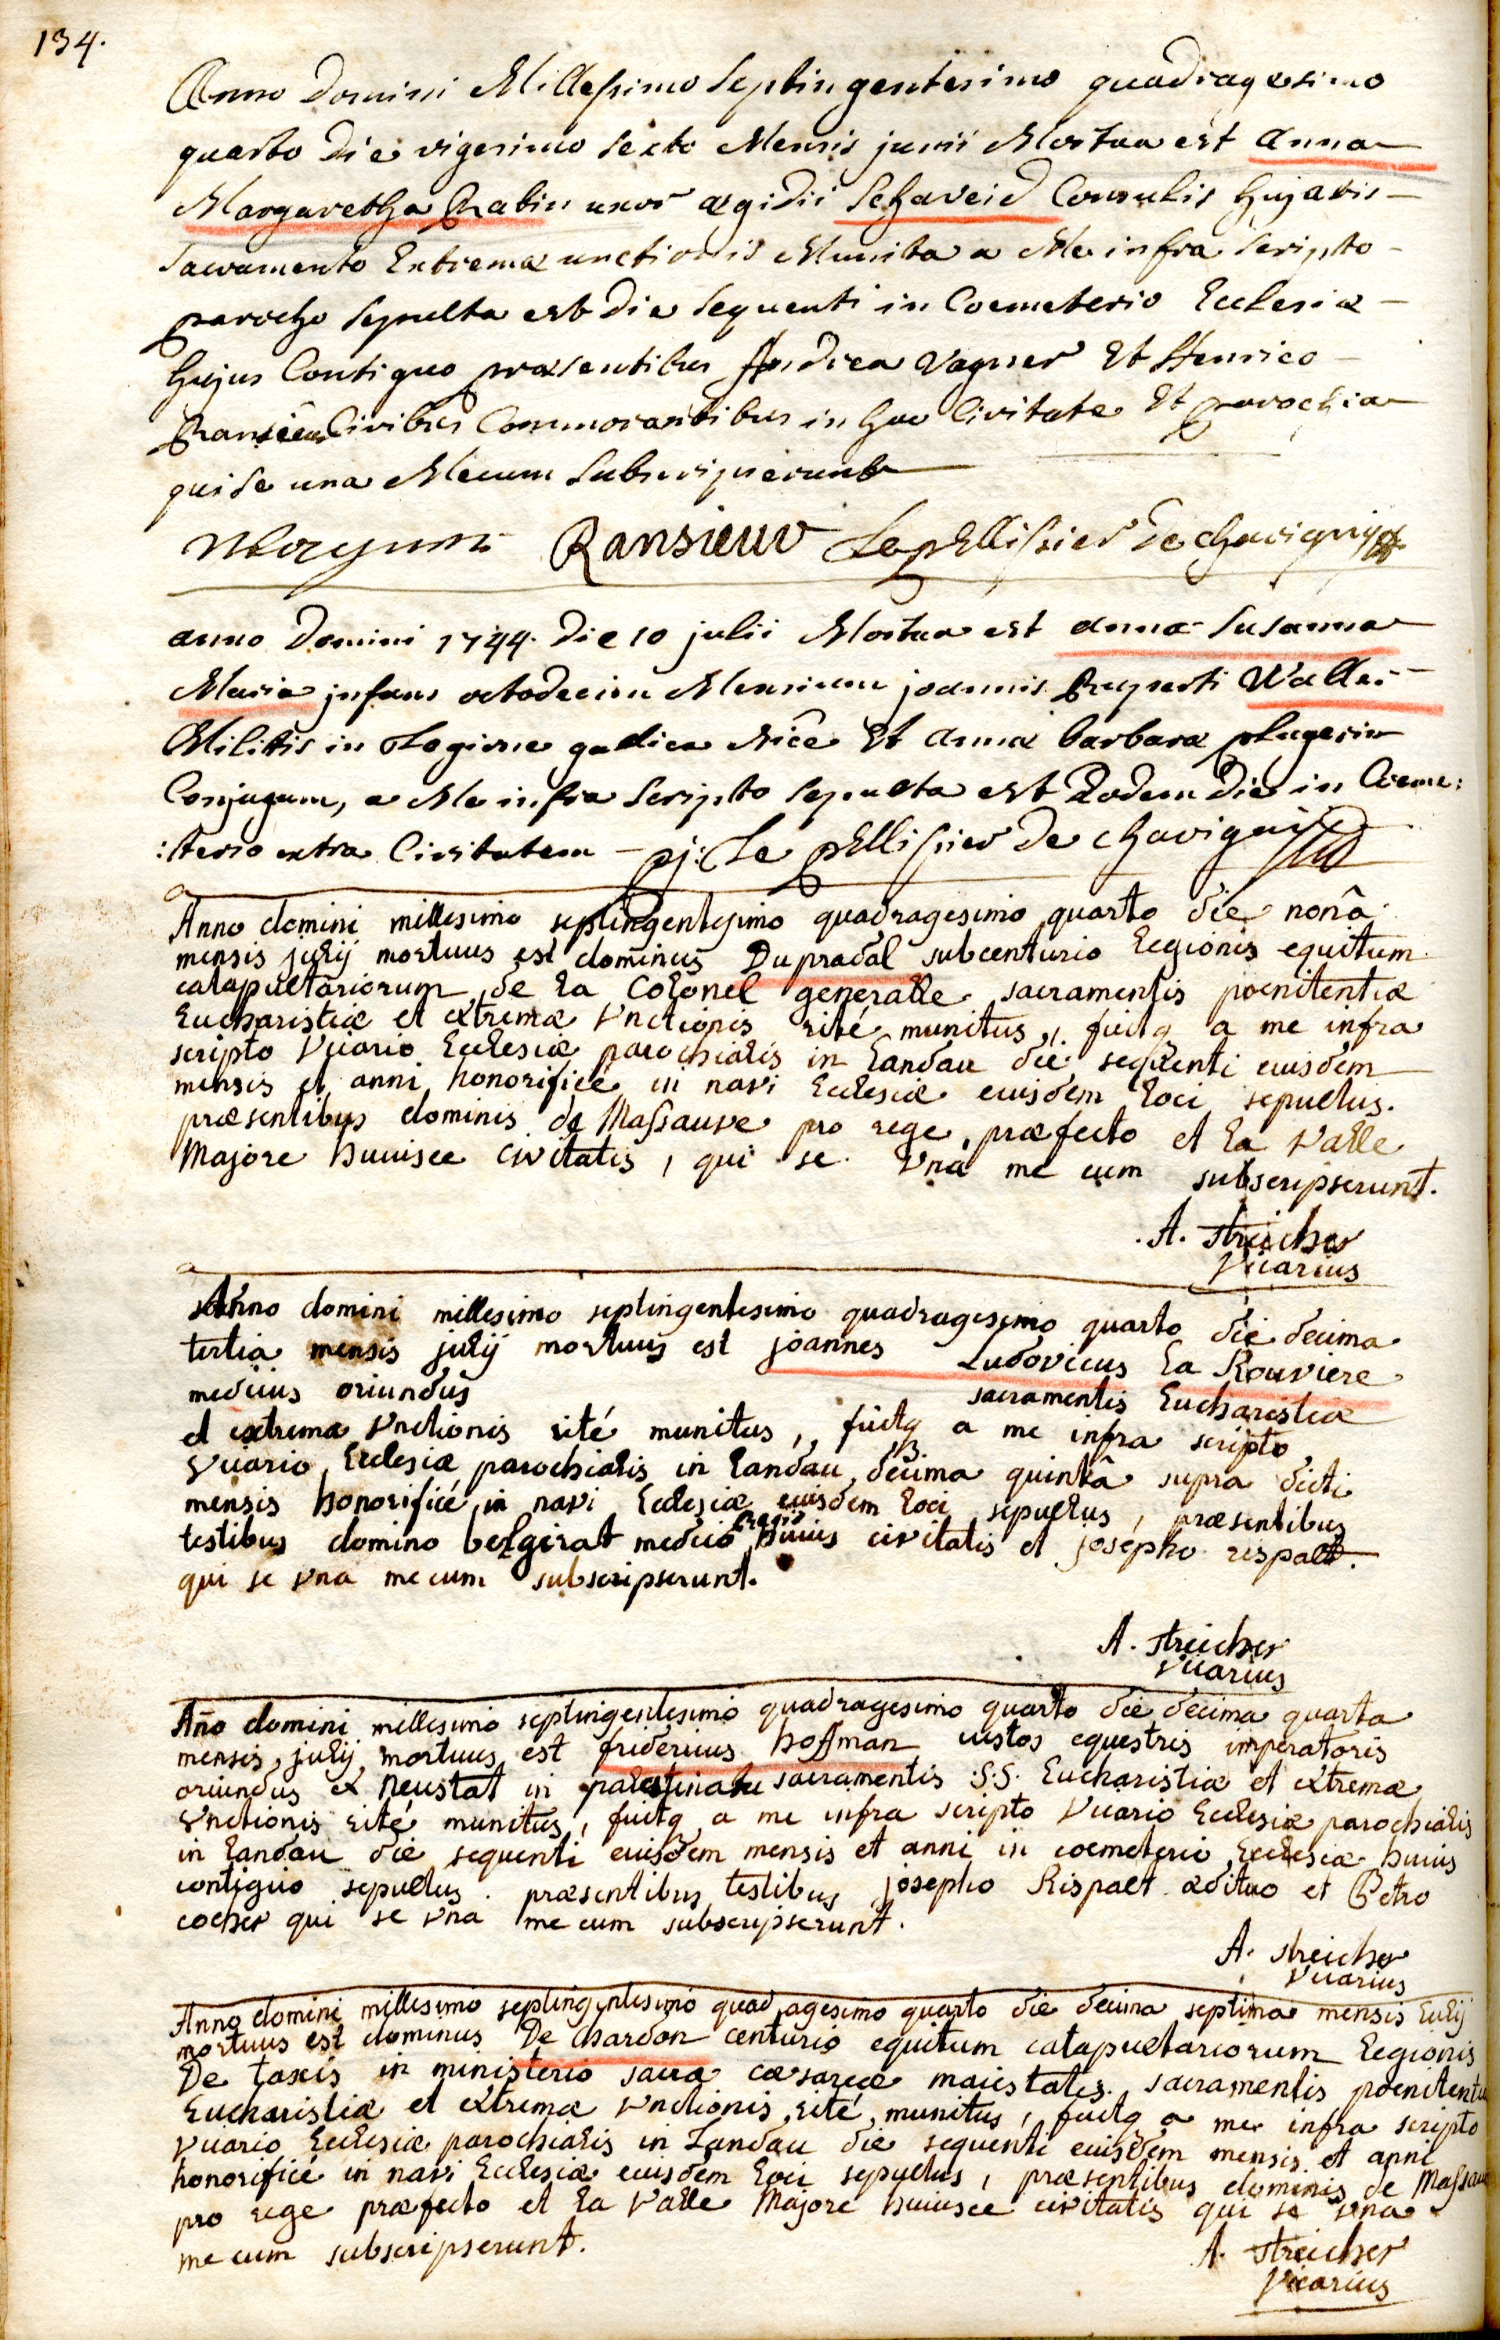 134.
Anno Domini Millesimo Septingentesimo quadragesimo
quarto Die vigesimo sexto Mensis junii Mortua est anna
Margaretha Rabin uxor ægidii Schaveid Consulis hujatis
sacramento Extremæ unctionis Munita a Me infra scripto
parocho sepulta est die sequenti in Coemeterio Ecclesiæ
hujus Contiguo præsentibus Andrea Vagner Et Henrico
Civibus Commorantibus in hac Civitate Et parochia
qui se una Mecum subscripserunt
Ransieur LepEllissier de chavigny
anno Domini 1744. die 10 julii Mortua est anna Susanna
Maria infans octodecim Mensium joannis Ruperti Waller
Militis in Legione gallica Et annæ barbaræ
Conjugum, a Me infra scripto sepulta est Eodem die in Coeme:
:terio extra Civitatem pj: Le pEllissier de chavigny
Anno domini millesimo septingentesimo quadragesimo quarto die nonâ
mensis julij mortuus est dominus Dupradal subcenturio legionis equitum
catapultariorum de la Colonel generalle sacramentis poenitentiæ
Eucharistiæ et extremæ Vnctionis rité munitus, fuitq a me infra
scripto Vicario Ecclesiæ parochialis in Landau die sequenti eiusdem
mensis et anni honorificé in navi Ecclesiæ eiusdem loci sepultus.
præsentibus dominis de Massauve pro rege præfecto et la Valle
Majore huiusce Civitatis, qui se Vná me cum subscripserunt.
A. Streicher
Vicarius
Anno domini millesimo septingentesimo quadragesimo quarto die decima
tertia mensis julij mortuus est joannes Ludovicus la Rouviere
medicus oriundus sacramentis Eucharistiæ
et extremæ Vnctionis rité munitus, fuitq a me infra scripto
Vicario Ecclesiæ parochialis in Landau, decima quintâ supra dicti
mensis honorificé in navi Ecclesiæ eiusdem loci sepultus, præsentibus
testibus domino belgirat medico regio huius civitatis et josepho respalt.
qui se vna me cum subscripserunt.
A. Streicher
Vicarius
Año domini millesimo septingentesimo quadragesimo quarto die decima quarta
mensis julij mortuus est fridericus hoffman custos equestris imperatoris
oriundus ex Neustat in palatinatu sacramentis S.S. Eucharistiæ et extremæ
Vnctionis rité munitus, fuitq a me infra scripto Vicario Ecclesiæ parochialis
in Landau die sequenti eiusdem mensis et anni in coemeterio Ecclesiæ huius
contiguo sepultus. præsentibus testibus josepho Rispalt ædituo et Petro
cocher qui se vna me cum subscripserunt.
A. Streicher
Vicarius
Anno domini millesimo septingentesimo quadragesimo quarto die decima septima mensis Julij
mortuus est dominus De chardon centurio equitum catapultariorum Legionis
De taxis in ministerio sacræ cæsareæ maiestatis. sacramentis poenitentiæ
Eucharistiæ et extremæ Vnctionis rité munitus, fuitq a me infra scripto
Vicario Ecclesiæ parochialis in Landau die sequenti eiusdem mensis et anni
honorificé in navi Ecclesiæ eiusdem loci sepultus, præsentibus dominis de Massauve
pro rege præfecto et la Valle Majore huiusce civitatis qui se vna
me cum subscripserunt.
A. Streicher
Vicarius